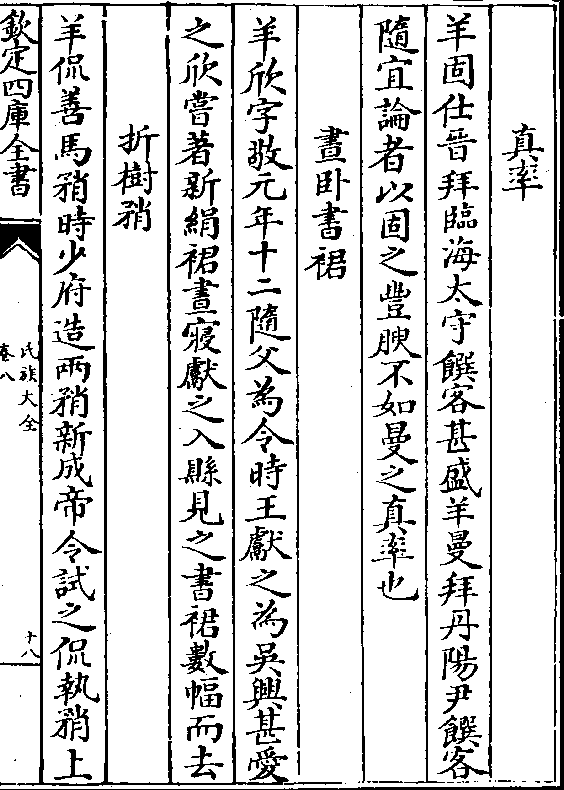 真率
羊固仕晉拜臨海太守饌客甚盛羊曼拜丹陽尹饌客
隨宜論者以固之豐腴不如曼之真率也
晝卧書裙
羊欣字敬元年十二隨父為令時王獻之為吳興甚愛
之欣嘗著新絹裙晝寢獻之入縣見之書裙數幅而去
折樹矟
羊侃善馬矟時少府造兩矟新成帝令試之侃執矟上
欽定四庫全書
氏族大全
卷八
十八